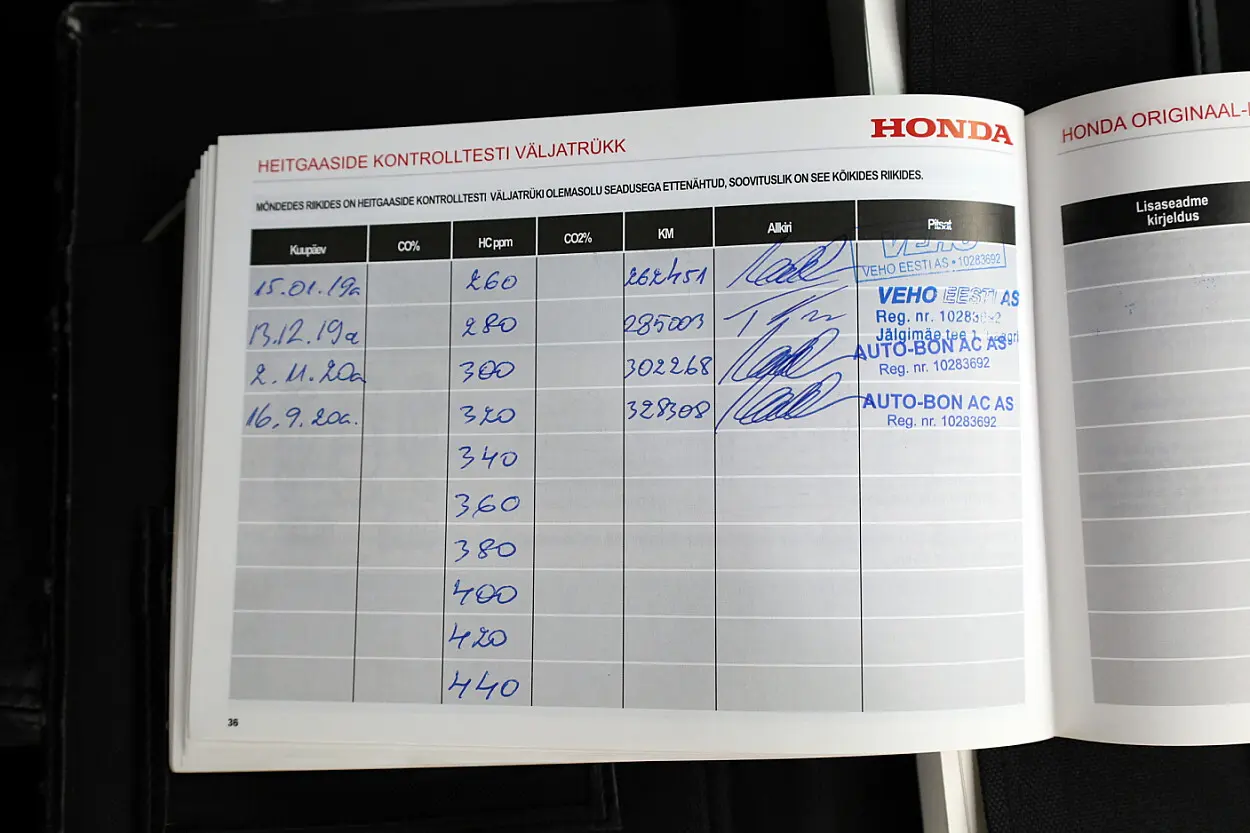 HONDA
HEITGAASIDE KONTROLLTESTI VÄLJATRÜKK
MÕNDEDES RIIKIDES ON HEITGAASIDE KONTROLLTESTI VÄLJATRÜKI OLEMASOLU SEADUSEGA ETTENÄHTUD, SOOVITUSLIK ON SEE KÕIKIDES RIIKIDES.
Kuupäev CO% HC ppm CO2% KM Allkiri Pitsat
15.01.19a 260 262451 VEHO
VEHO EESTI AS • 10283692
13.12.19a 280 285003 VEHO EESTI AS
Reg. nr. 10283692
Jälgimäe tee 1
2.11.20a 300 302268 AUTO-BON AC AS
Reg. nr. 10283692
16.9.20a. 320 328308 AUTO-BON AC AS
Reg. nr. 10283692
340
360
380
400
420
440
36
HONDA ORIGINAAL-
Lisaseadme
kirjeldus